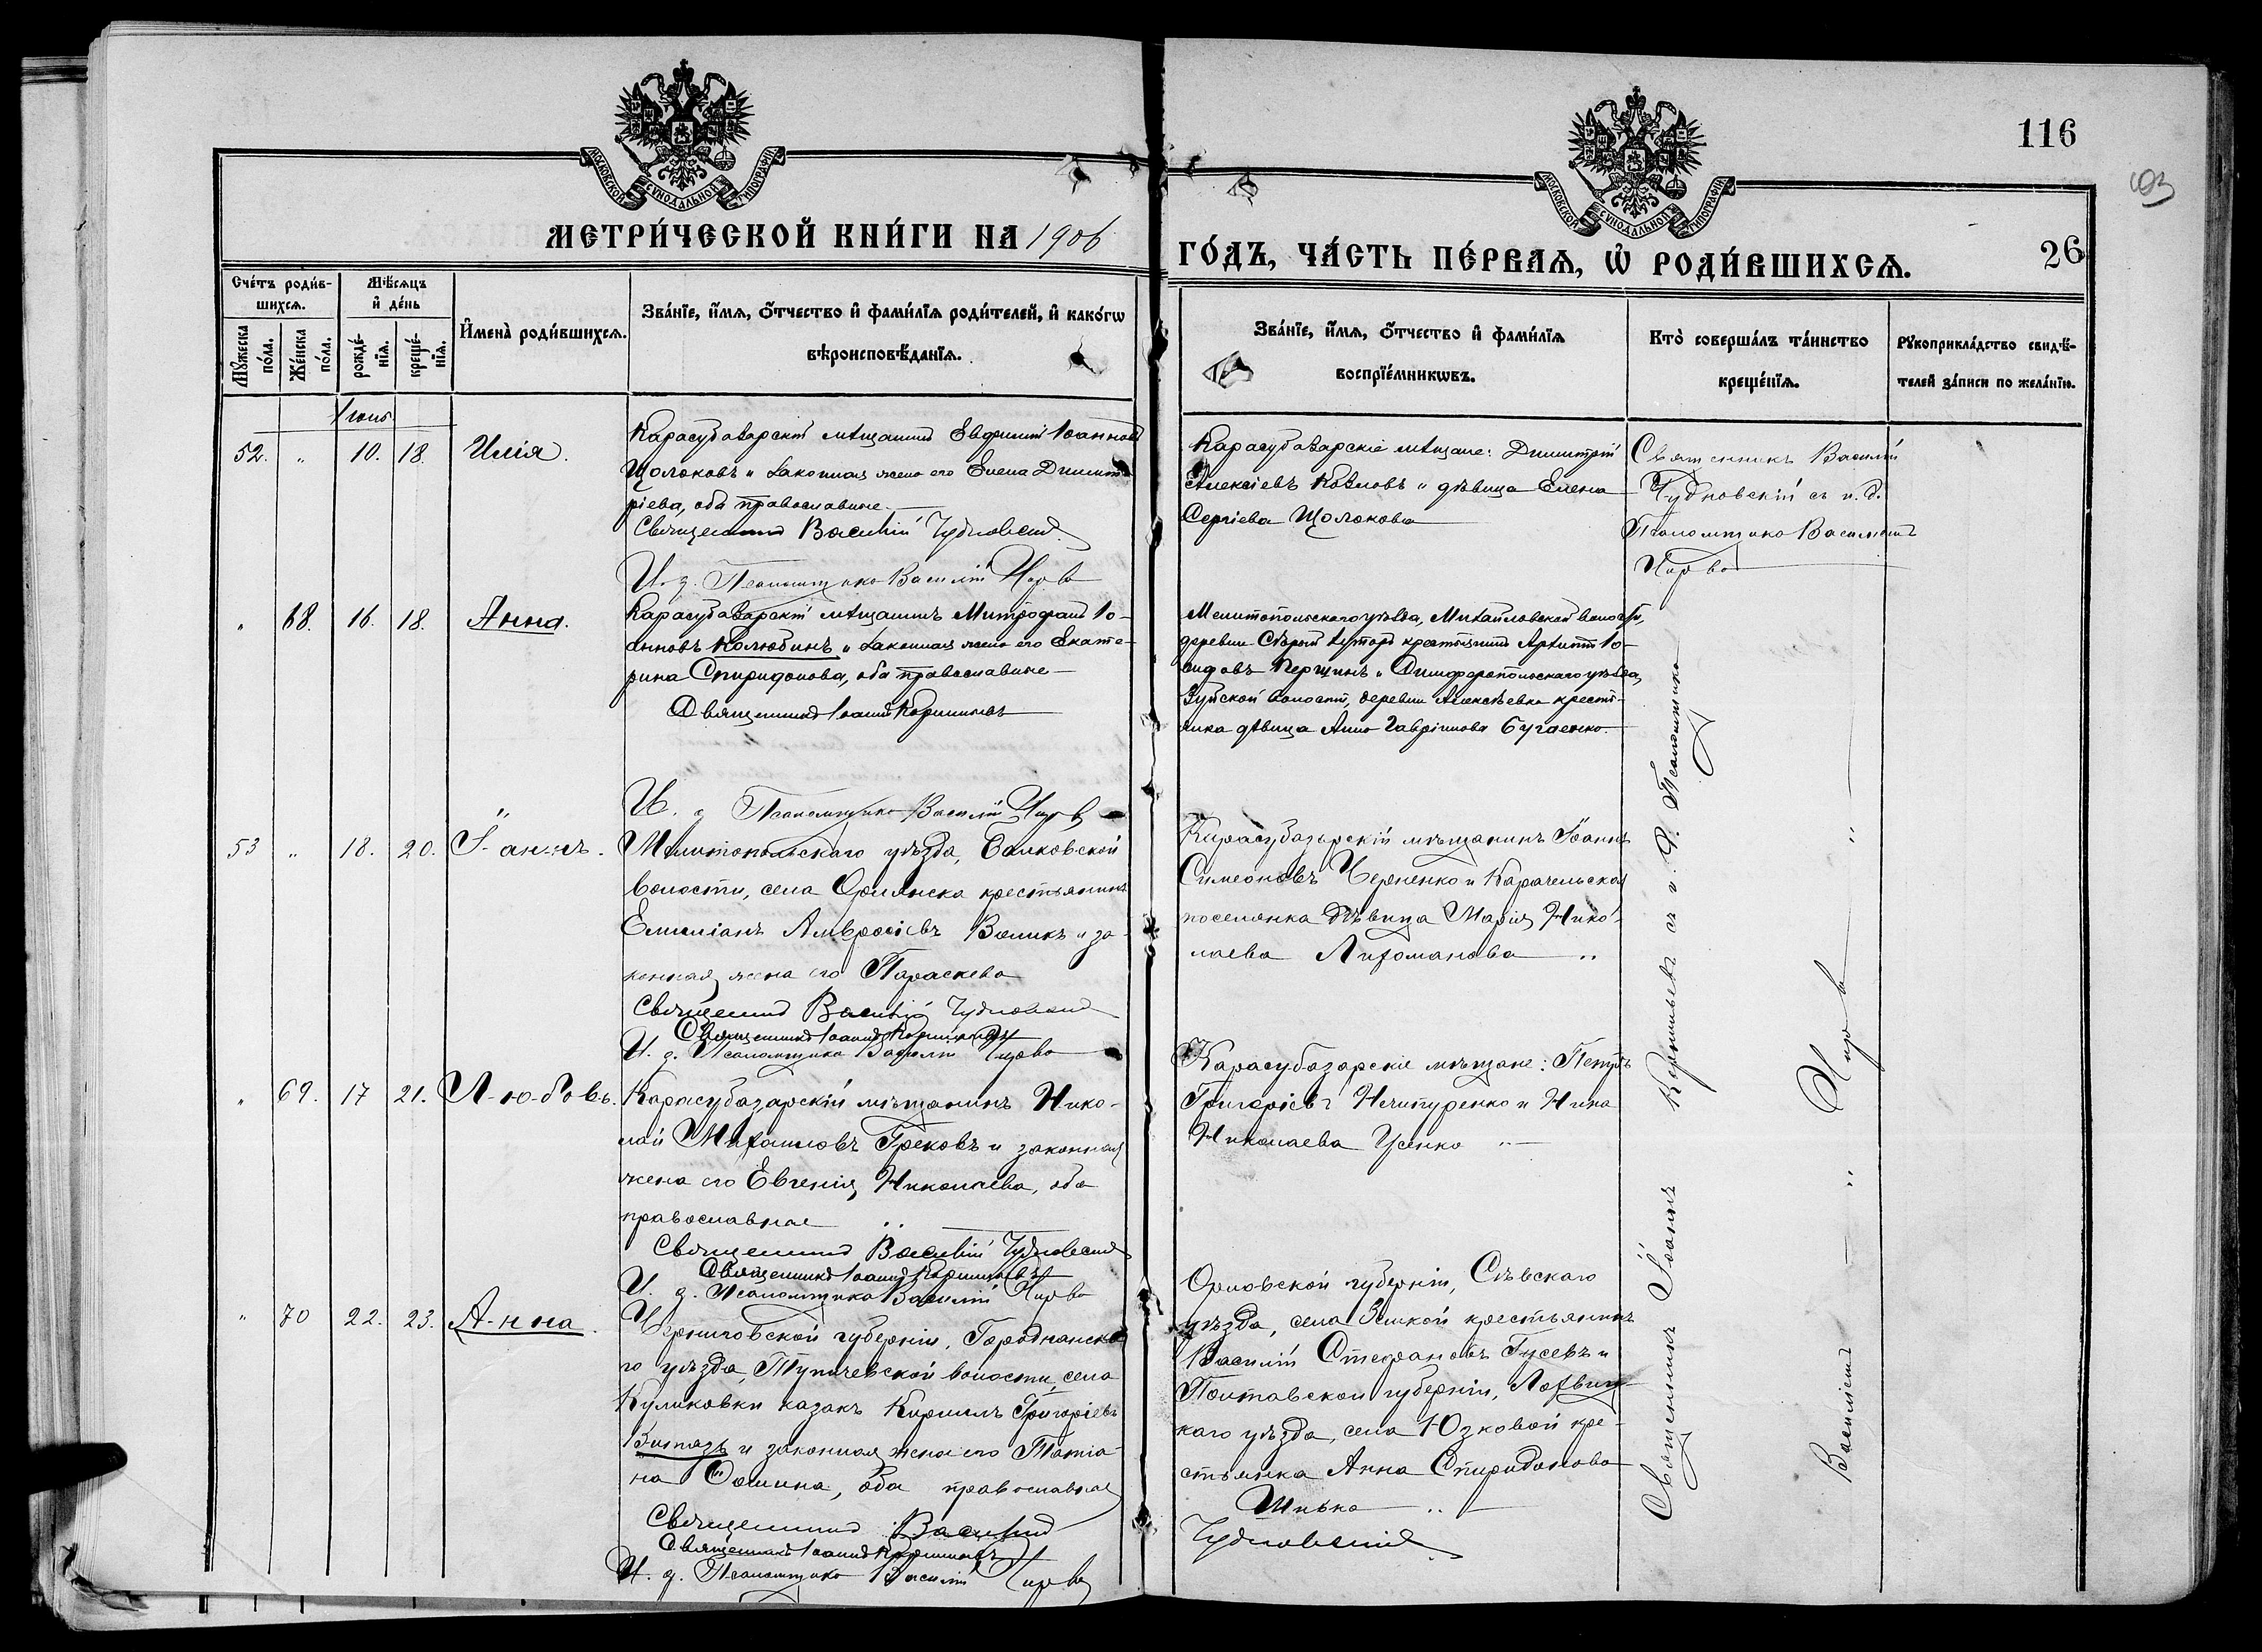 116
103
МОСКОВСКОЙ СѴНОДАЛЬНОЙ ТИПОГРАФІИ
МОСКОВСКОЙ СѴНОДАЛЬНОЙ ТИПОГРАФІИ
МЕТРИ́ЧЕСКОЙ КНИ́ГИ НА 1906
ГО́ДЪ, ЧА́СТЬ ПЕ́РВАѦ, Ѡ҆ РОДИ́ВШИХСѦ.
26
Сче́тъ роди́в-
шихсѧ.
Мꙋжеска по́ла.
Же́нска по́ла.
Мѣ́сѧцъ
и҆ де́нь
рожде́-
нїѧ.
креще́-
нїѧ.
И҆менà роди́вшихсѧ.
Зва́нїе, и҆́мѧ, ѻ҆́тчество и҆ фами́лїѧ роди́телей, и҆ како́гѡ
вѣроисповѣ́данїѧ.
Зва́нїе, и҆́мѧ, ѻ҆́тчество и҆ фами́лїѧ
воспрїе́мникѡвъ.
Кто̀ соверша́лъ та́инство
креще́нїѧ.
Рꙋкоприкла́дство свидѣ́-
телей за́писи по жела́нїю.
Іюнь
52. " 10. 18. Илія.
Карасубазарскій мѣщанинъ Евфимій Іоанновъ
Щолоковъ и законная жена его Елена Димит-
ріева, оба православные.
Священникъ Василій Чудновскій
И. д. Псаломщика Василій Чирва
Карасубазарскіе мѣщане: Димитрій
Алексіевъ Козловъ и дѣвица Елена
Сергіева Щолокова
Священникъ Василій
Чудновскій съ и. д.
Псаломщика Василіемъ
Чирвой
" 68. 16. 18. Анна.
Карасубазарскій мѣщанинъ Митрофанъ Іо-
анновъ Колюбинъ и законная жена его Екате-
рина Спиридонова, оба православные
Священникъ Іоаннъ Корниловъ
И. д. Псаломщика Василій Чирва
Мелитопольскаго уѣзда, Михайловской волости,
деревни Старый хуторъ крестьянинъ Архиппъ Іо-
Симферопольскаго уѣзда,
Зуйской волости, деревни Алексѣевка кресть-
янка дѣвица Анна Гавріилова Бугаенко
53 " 18. 20. Іоаннъ.
Мелитопольскаго уѣзда, Балковской
волости, села Орлянска крестьянинъ
Емиліанъ Амвросіевъ Воликъ и за-
конная жена его Параскева
Священникъ Василій Чудновскій
Священникъ Іоаннъ Корниловъ
И. д. Псаломщика Василій Чирва
Карасубазарскій мѣщанинъ Іоаннъ
Симеоновъ Черненко и Карачельская
поселянка дѣвица Марія Нико-
лаева Лихоманова
" 69. 17 21. Любовь.
Карасубазарскій мѣщанинъ Нико-
лай Михаиловъ Грековъ и законная
жена его Евгенія Николаева, оба
православные
Священникъ Василій Чудновскій
Священникъ Іоаннъ Корниловъ
И. д. Псаломщика Василій Чирва
Карасубазарскіе мѣщане: Петръ
Григоріевъ Нечипуренко и Нина
Николаева Усенко
" 70 22. 23. Анна.
Черниговской губерніи, Городнянска-
го уѣзда, Тупичевской волости, села
Куликовки казакъ Кириллъ Григоріевъ
Витязь и законная жена его Татіа-
на Ѳомина, оба православные
Священникъ Василій
Чудновскій
Священникъ Іоаннъ Корниловъ
И. д. Псаломщика Василій Чирва
Орловской губерніи, Сѣвскаго
уѣзда, села крестьянинъ
Василій Стефановъ Гусевъ и
Полтавской губерніи, Лохвиц-
каго уѣзда, села Юзковой кре-
стьянка Анна Спиридонова
Шинка
Священникъ Іоаннъ Корниловъ съ и. д. Псаломщика
Василіемъ Чирвой